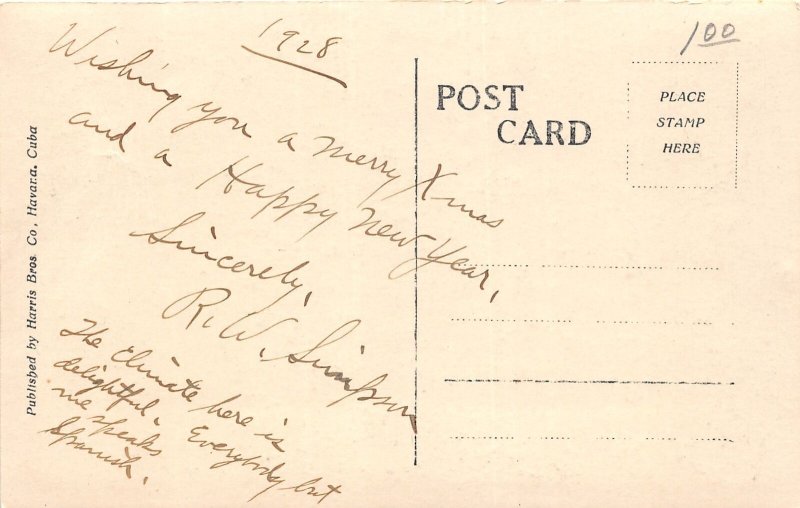 1928
Wishing you a merry Xmas
and a Happy New Year,
Sincerely,
R. W. Simpson
The climate here is
delightful. Everybody but
me speaks
Spanish.
Published by Harris Bros. Co., Havana, Cuba
POST
CARD
1 00
PLACE
STAMP
HERE